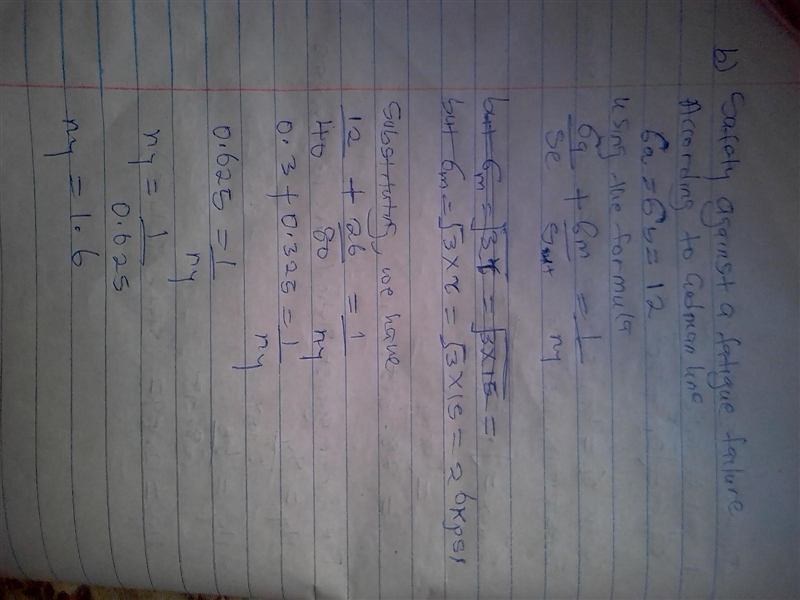 b) Safety against a fatigue failure
According to Gdman line
6a = 6b = 12
Using the formula
6a/Se + 6m/Sut = 1/ny
but 6m = √3τ = √3×15 =
but 6m = √3 × τ = √3 × 15 = 26 Kpsi
Substituting, we have
12/40 + 26/80 = 1/ny
0.3 + 0.325 = 1/ny
0.625 = 1/ny
ny = 1/0.625
ny = 1.6